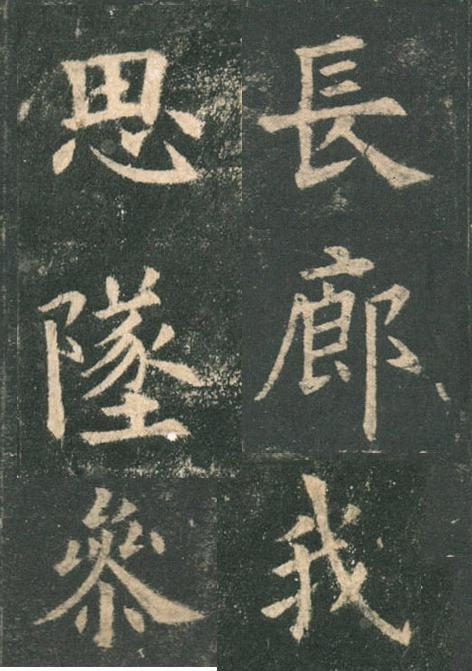 長廊我
思墜參